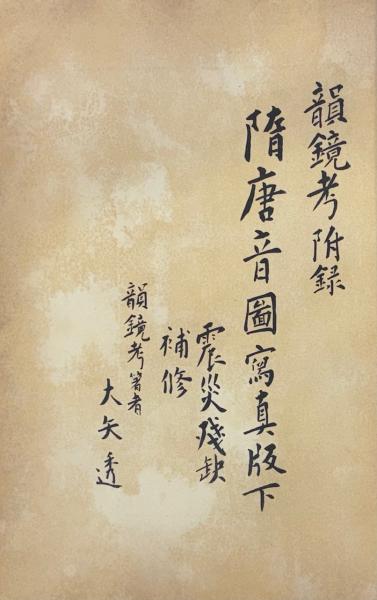 韻鏡考附錄
隋唐音圖寫真版下
震災殘缺
補修
韻鏡考著者
大矢透